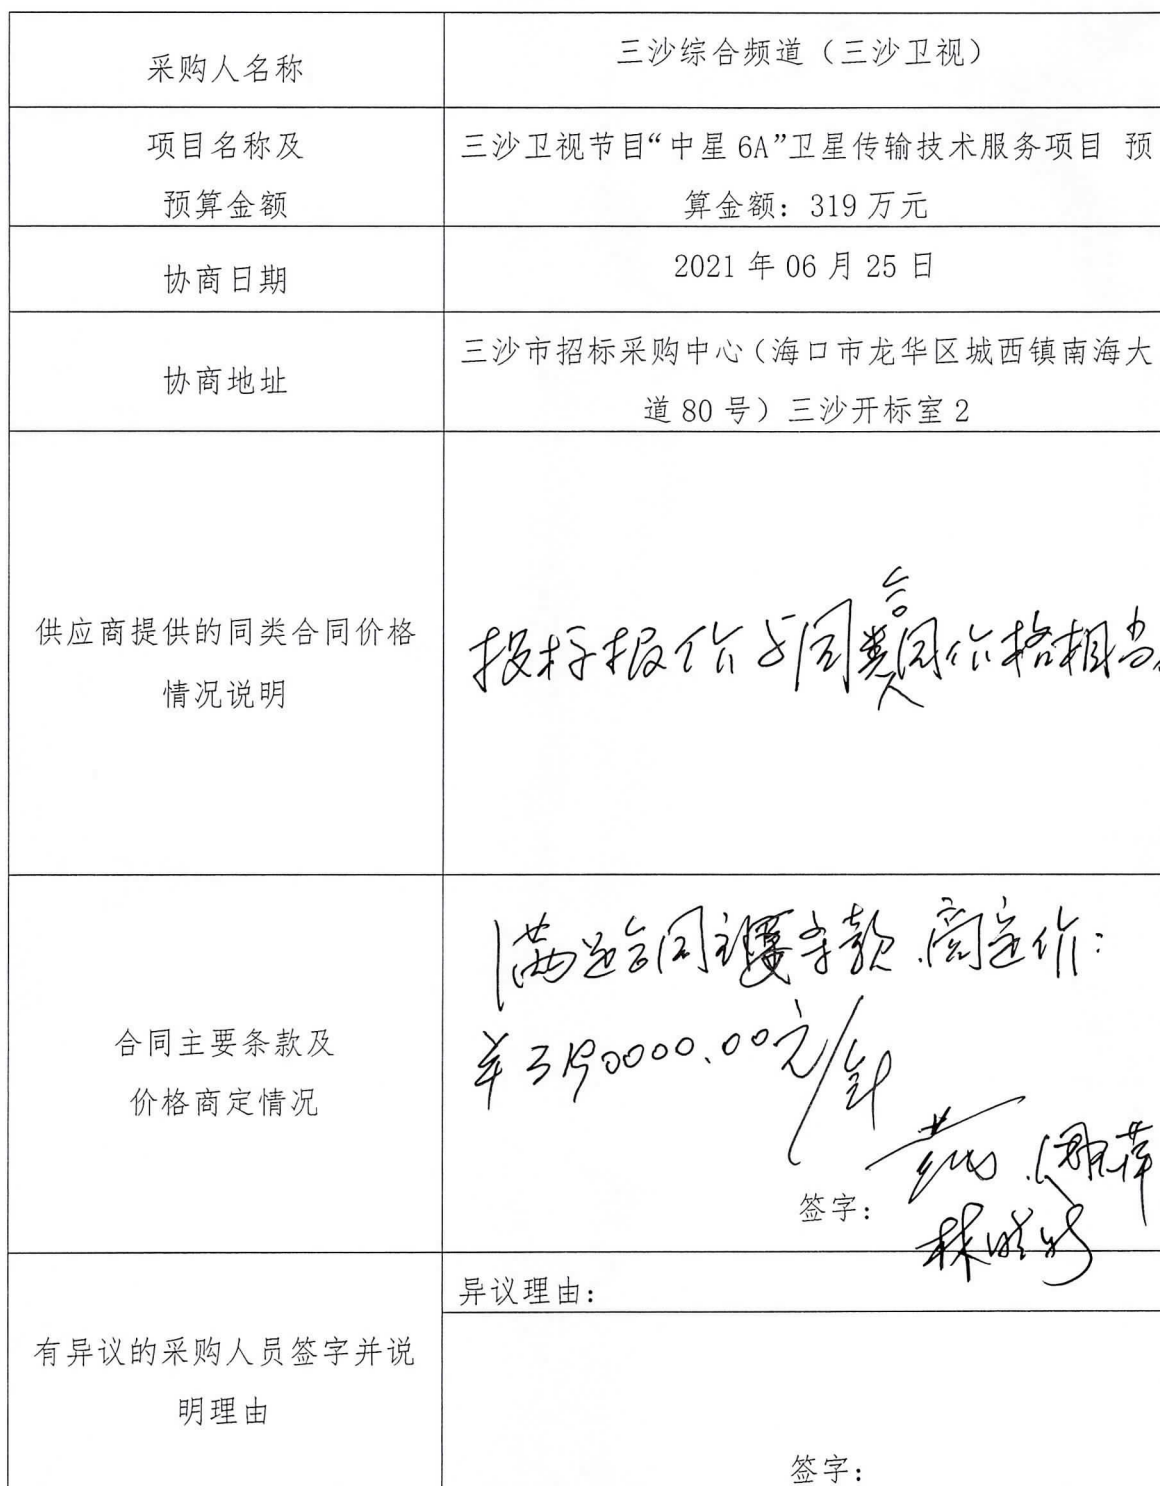 采购人名称
三沙综合频道（三沙卫视）
项目名称及
预算金额
三沙卫视节目“中星 6A”卫星传输技术服务项目 预
算金额：319 万元
协商日期
2021 年 06 月 25 日
协商地址
三沙市招标采购中心（海口市龙华区城西镇南海大
道 80 号）三沙开标室 2
供应商提供的同类合同价格
情况说明
投标报价与同类合同价格相当
合同主要条款及
价格商定情况
满足合同主要条款，商定价：
¥3190000.00元/年
签字：
有异议的采购人员签字并说
明理由
异议理由：
签字：